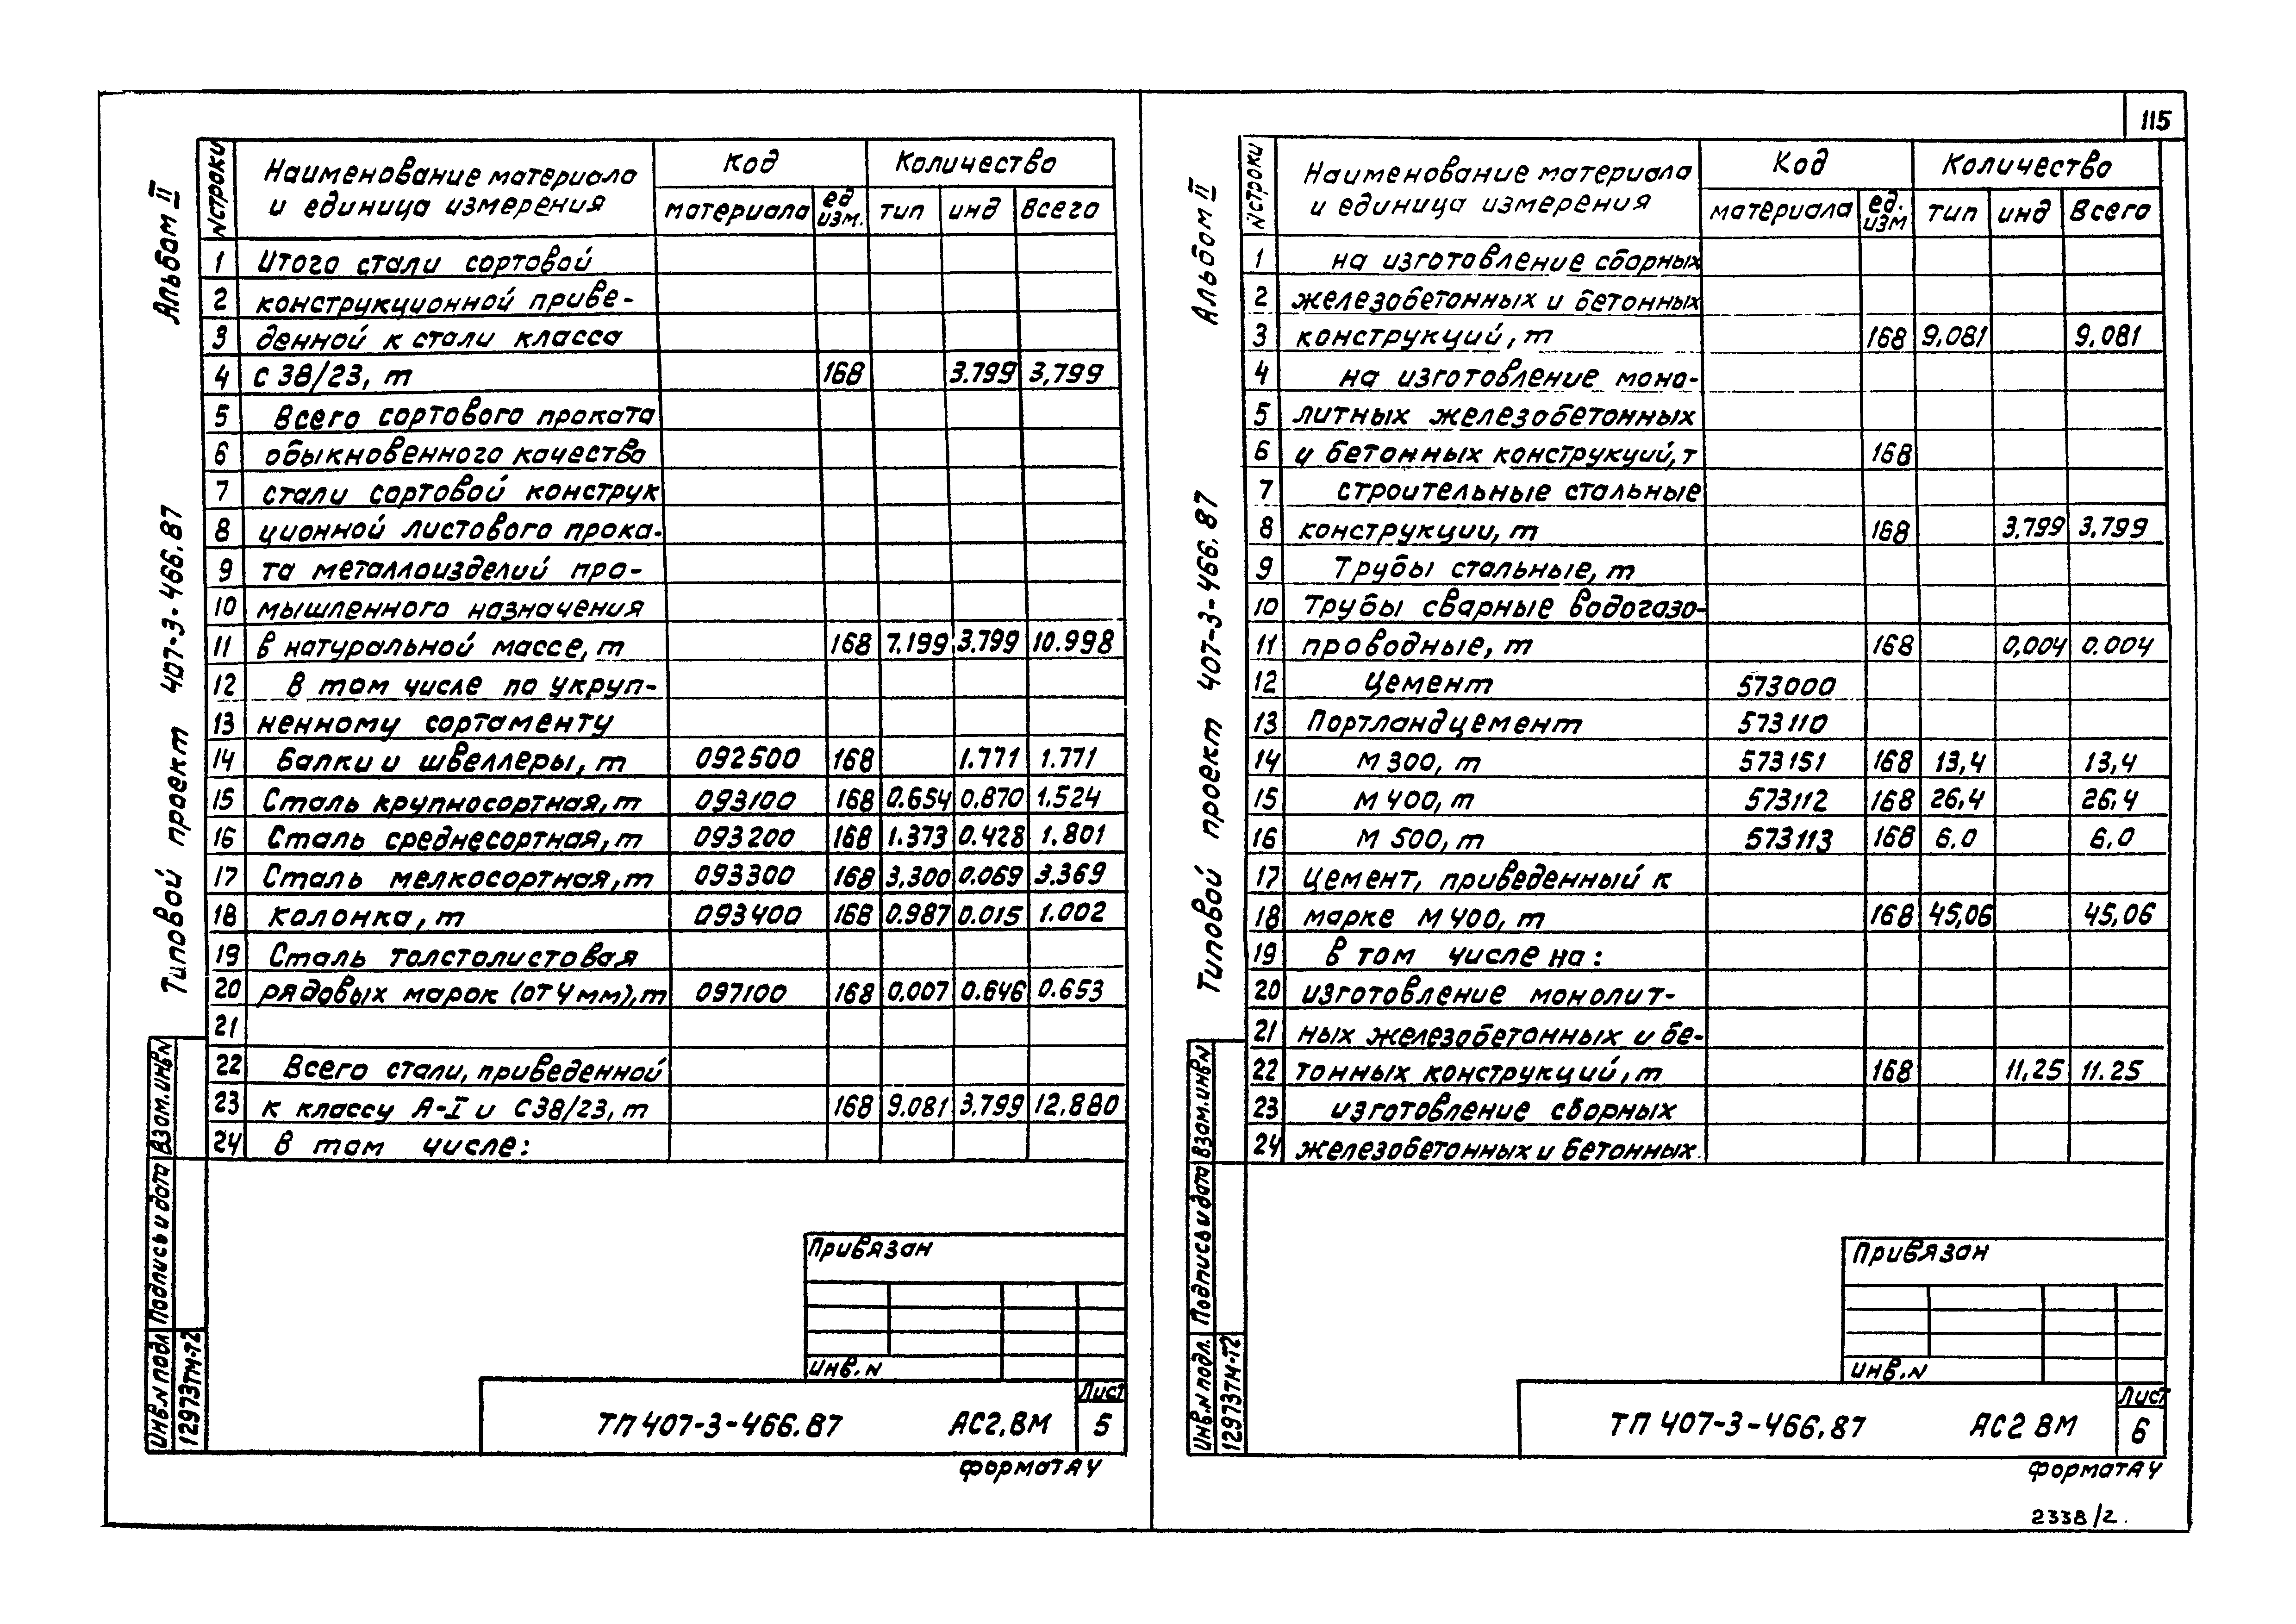 115
Альбом II
Типовой проект 407-3-466.87
N строки Наименование материала и единица измерения Код Количество
материала ед изм. тип инд всего
1 Итого стали сортовой
2 конструкционной приве-
3 денной к стали класса
4 С 38/23, т 168 3.799 3,799
5 Всего сортового проката
6 обыкновенного качества
7 стали сортовой конструк
8 ционной листового прока-
9 та металлоизделий про-
10 мышленного назначения
11 в натуральной массе, т 168 7.199 3.799 10.998
12 В том числе по укруп-
13 ненному сортаменту
14 балки и швеллеры, т 092500 168 1.771 1.771
15 Сталь крупносортная, т 093100 168 0.654 0.870 1.524
16 Сталь среднесортная, т 093200 168 1.373 0.428 1.801
17 Сталь мелкосортная, т 093300 168 3.300 0.069 3.369
18 колонка, т 093400 168 0.987 0.015 1.002
19 Сталь толстолистовая
20 рядовых марок (от 4 мм), т 097100 168 0,007 0.646 0.653
21
22 Всего стали, приведенной
23 к классу А-I и С38/23, т 168 9.081 3.799 12.880
24 В том числе:
Взам.инв.N
Подпись и дата
Инв.N подл
12973тм-т2
Привязан
инв.N
ТП 407-3-466.87 АС2.ВМ Лист
5
Формат А4
Альбом II
Типовой проект 407-3-466.87
N строки Наименование материала и единица измерения Код Количество
материала ед. изм тип инд Всего
1 на изготовление сборных
2 железобетонных и бетонных
3 конструкций, т 168 9,081 9,081
4 на изготовление моно-
5 литных железобетонных
6 и бетонных конструкций, т 168
7 строительные стальные
8 конструкции, т 168 3.799 3.799
9 Трубы стальные, т
10 Трубы сварные водогазо-
11 проводные, т 168 0,004 0.004
12 Цемент 573000
13 Портландцемент 573110
14 М 300, т 573151 168 13,4 13,4
15 М 400, т 573112 168 26,4 26,4
16 М 500, т 573113 168 6.0 6,0
17 цемент, приведенный к
18 марке М 400, т 168 45,06 45,06
19 в том числе на:
20 изготовление монолит-
21 ных железобетонных и бе-
22 тонных конструкций, т 168 11,25 11.25
23 изготовление сборных
24 железобетонных и бетонных
Взам.инв.N
Подпись и дата
Инв.N подл.
12973тм-т2
Привязан
инв.N
ТП 407-3-466.87 АС2 ВМ Лист
6
Формат А4
2338/2.